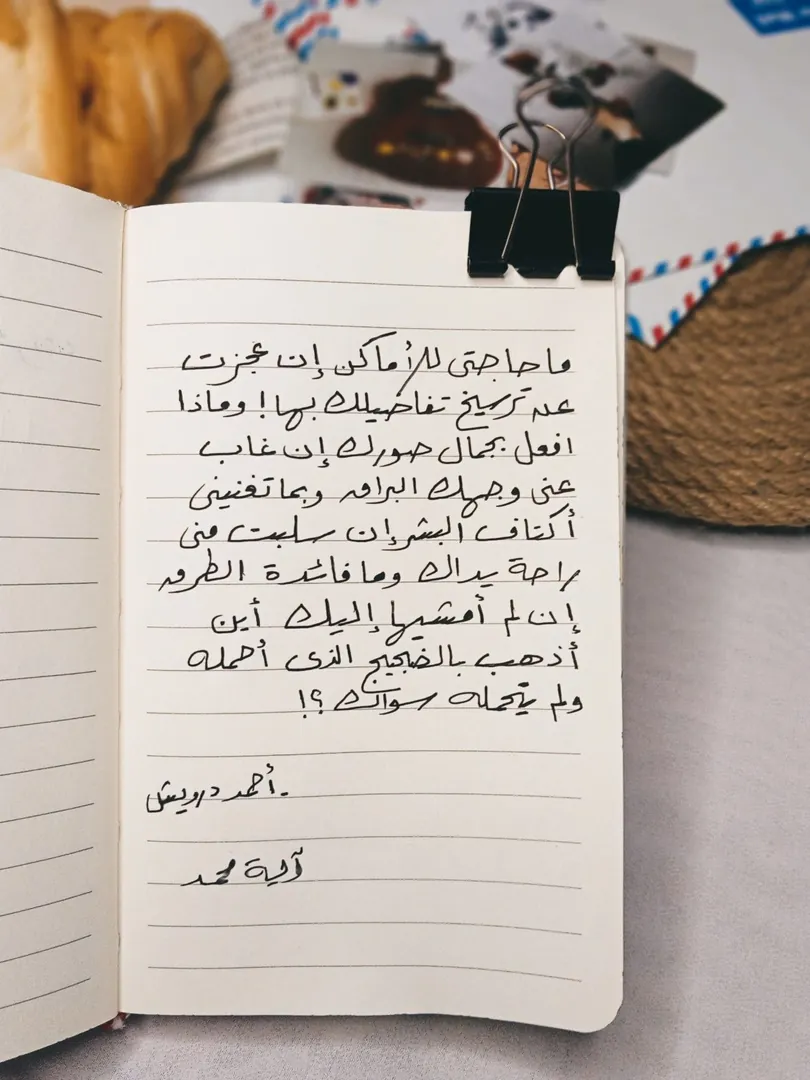 ما حاجتي للأماكن إن عجزت
عن ترسيخ تفاصيلك بها! وماذا
افعل بجمال صورك إن غاب
عني وجهك البراق وبما تغنيني
أكتاف البشر إن سلبت مني
راحة يداك وما فائدة الطرق
إن لم أمشيها إليك أين
أذهب بالضجيج الذي أحمله
ولم يتحمله سواك ؟!
أحمد درويش.
آية محمد